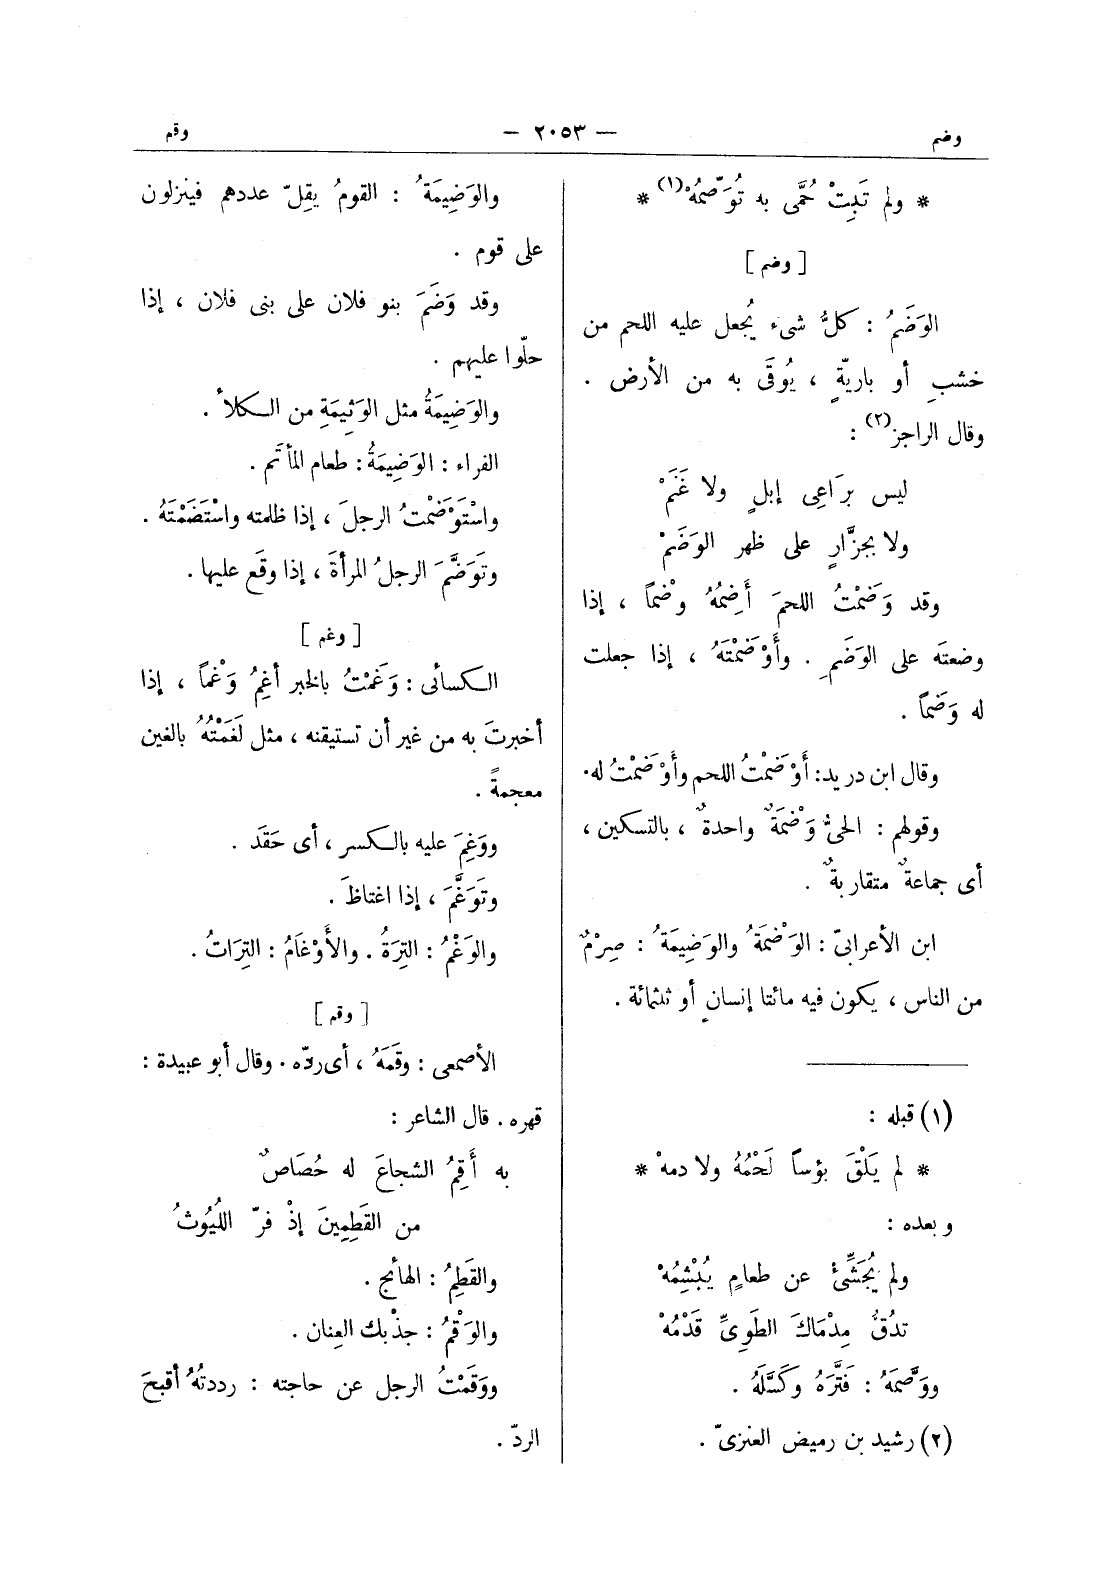 وضم
— ٢٠٥٣ —
وقم
* ولم تَبِتْ حُمَّى به تُوَصِّمُهْ(١) *
[ وضم ]
الوَضَمُ : كلُّ شىء يُجعل عليه اللحم من
خشبٍ أو باريّةٍ ، يُوقَى به من الأرض .
وقال الراجز(٢) :
ليس برَاعِى إبلٍ ولا غَنَمْ
ولا بجزَّارٍ على ظهر الوَضَمْ
وقد وَضَمْتُ اللحمَ أَضِمُهُ وضْماً ، إذا
وضعتَه على الوَضَمِ . وأَوْضَمْتَهُ ، إذا جعلت
له وَضَماً .
وقال ابن دريد: أَوْضَمْتُ اللحم وأَوْضَمْتُ له.
وقولهم : الحىُّ وَضْمَةٌ واحدةٌ ، بالتسكين ،
أى جماعةٌ متقاربةٌ .
ابن الأعرابىّ : الوَضْمَةُ والوَضِيمَةُ : صِرْمٌ
من الناس ، يكون فيه مائتا إنسانٍ أو ثلثمائة .
(١) قبله :
* لم يَلْقَ بؤساً لَحْمُهُ ولا دمهْ *
وبعده :
ولم يُجَشِّئْ عن طعامٍ يُبْشِمُهْ
تدُقُّ مِدْمَاكَ الطَوِىِّ قَدَمُهْ
ووَصَّمَهُ : فَتَّرَهُ وكَسَّلَهُ .
(٢) رشيد بن رميض العنزىّ .
والوَضِيمَةُ : القومُ يقِلّ عددهم فينزلون
على قوم .
وقد وَضَمَ بنو فلان على بنى فلان ، إذا
حلّوا عليهم .
والوَضِيمَةُ مثل الوَثِيمَةِ من الكلأ .
الفراء : الوَضِيمَةُ : طعام المأتَم .
واسْتَوْضَمْتُ الرجلَ ، إذا ظلمته واسْتَضَمْتَهُ .
وتَوَضَّمَ الرجلُ المرأةَ ، إذا وقَع عليها .
[ وغم ]
الكسائى : وَغَمْتُ بالخبر أغِمُ وَغْماً ، إذا
أخبرتَ به من غير أن تستيقنه ، مثل لَغَمْتُهُ بالغين
معجمةً .
ووَغِمَ عليه بالكسر ، أى حَقَد .
وتَوَغَّمَ ، إذا اغتاظَ .
والوَغْمُ : التِرَةُ . والأَوْغَامُ : التِرَاتُ .
[ وقم ]
الأصمعى : وقَمَهُ ، أى ردّه . وقال أبو عبيدة :
قهره . قال الشاعر :
به أَقِمُ الشجاعَ له حُصَاصٌ
من القَطِمِينَ إذْ فرّ اللُيُوثُ
والقَطِمُ : الهائج .
والوَقْمُ : جذْبك العِنان .
ووَقَمْتُ الرجل عن حاجته : رددتُهُ أقبحَ
الردّ .